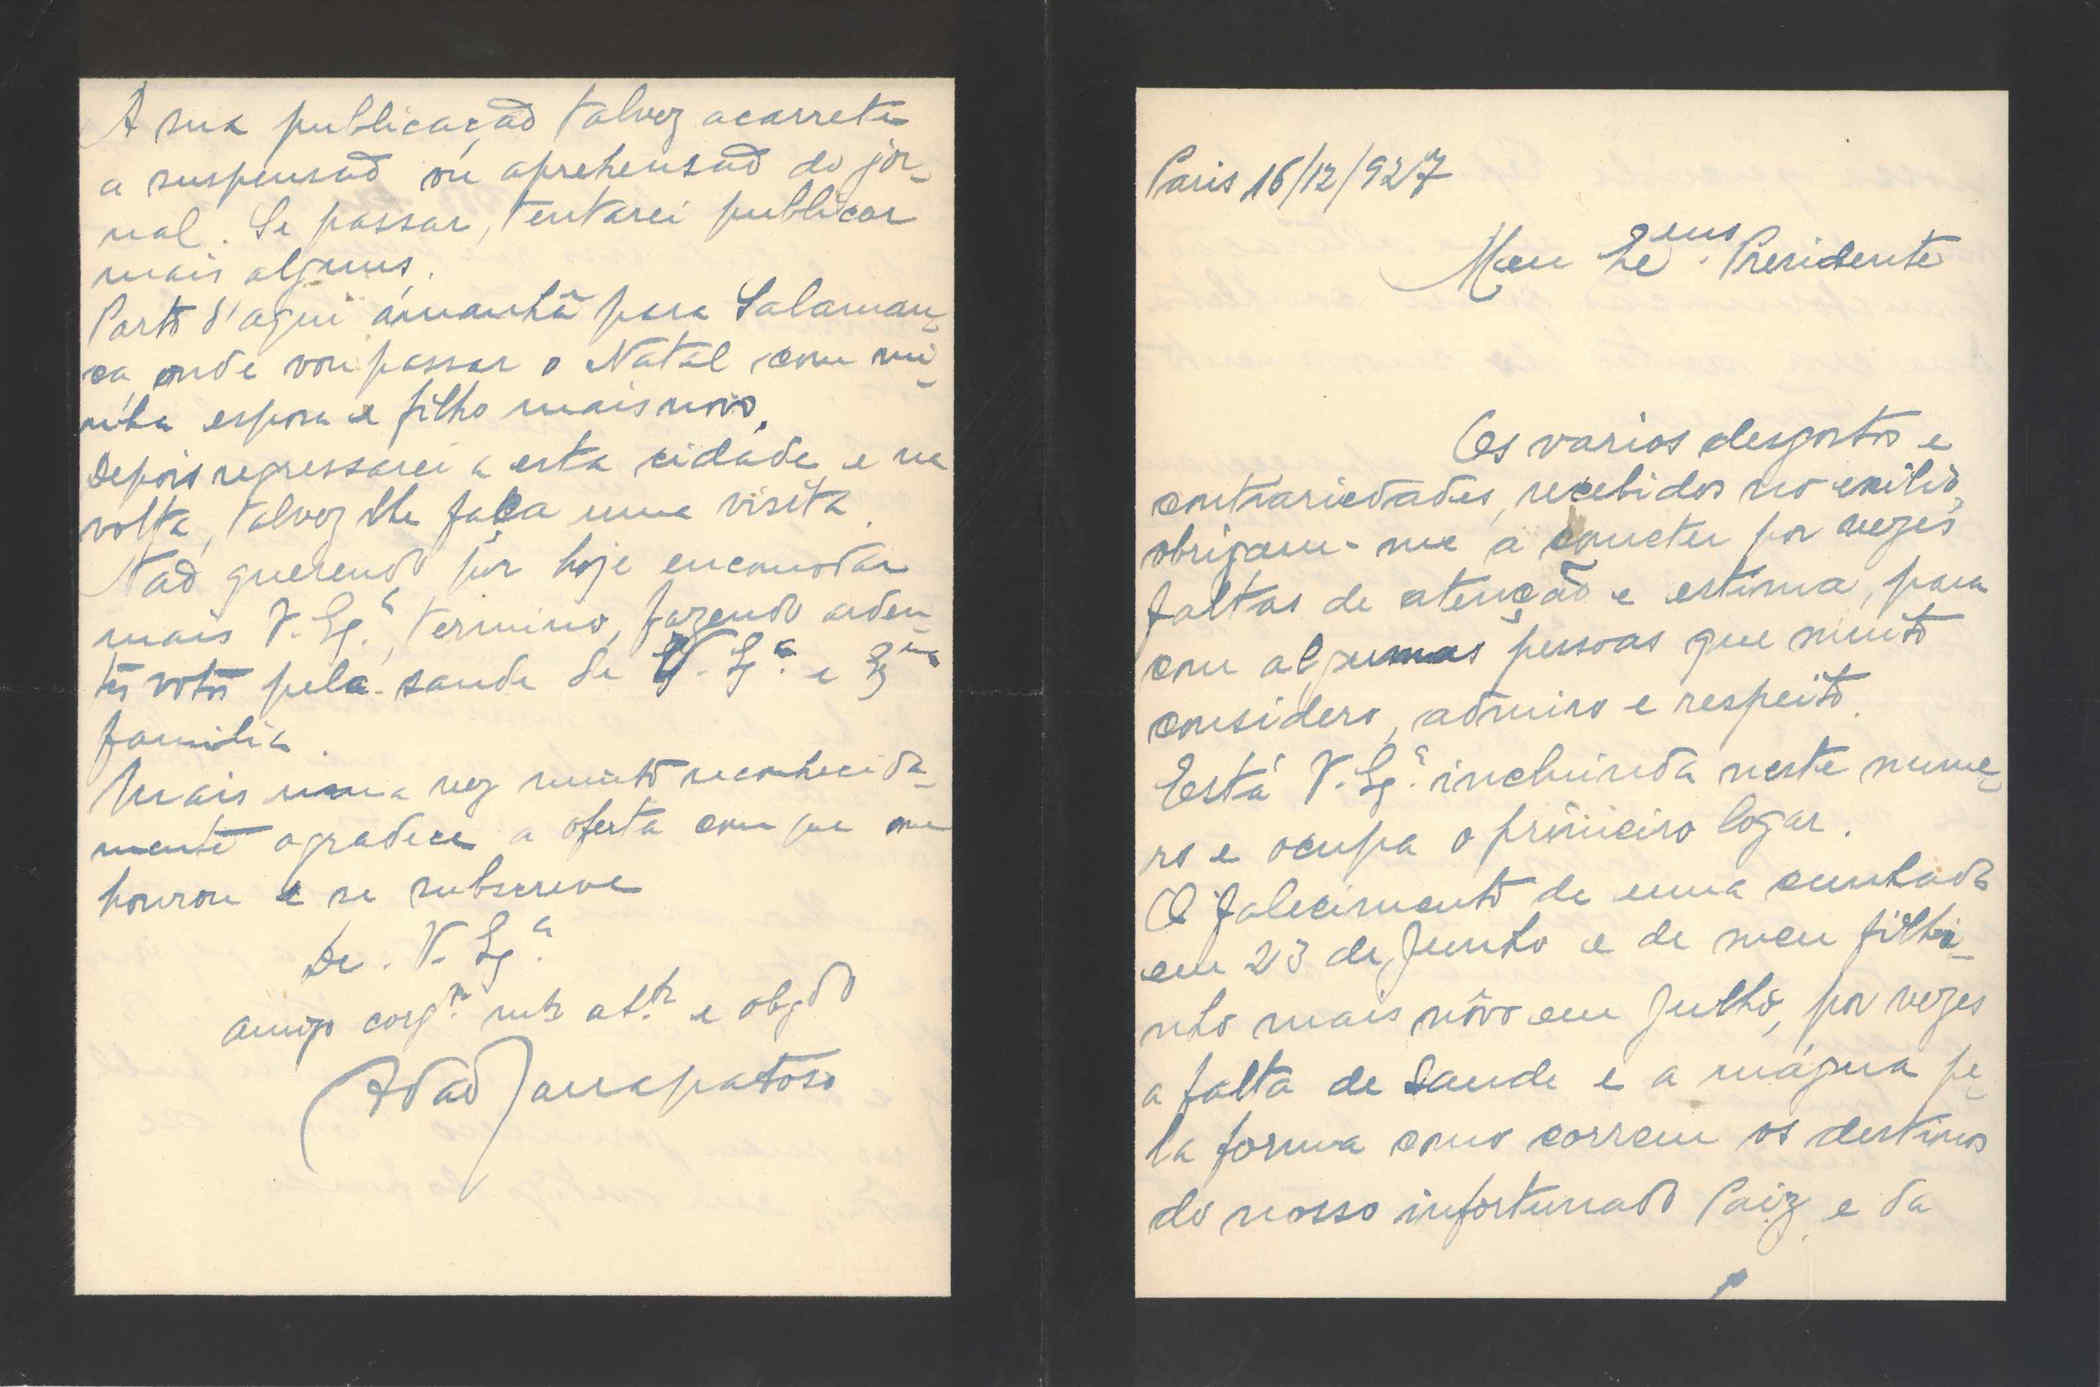 Paris 16/12/927
Meu Exº. Presidente
Os varios desgostos e
contrariedades, recebidos no exilio,
obrigam-me a cometer por vezes
faltas de atenção e estima, para
com algumas pessoas que muito
considero, admiro e respeito.
Está V. Exª. incluinda neste nume-
ro e ocupa o primeiro logar.
O falecimento de uma cunhada
em 23 de Junho e de meu filhi-
nho mais nôvo em Julho, por vezes
a falta de saude e a mágua pe-
la forma como correm os destinos
do nosso infortunado Paiz e da
A sua publicação talvez acarrete
a suspensão ou aprehensão do jor-
nal. Se passar, tentarei publicar
mais alguns.
Parto d'aqui ámanhã para Salaman-
ca, onde vou passar o Natal com mi-
nha esposa e filho mais novo.
Depois regressarei a esta cidade e na
volta, talvez lhe faça uma visita.
Não querendo por hoje encomodar
mais V. Exª., termino, fazendo arden-
tes votos pela saude de V. Exª. e Exma
familia.
Mais uma vez muito reconhecida-
mente agradece a oferta com que me
honrou e se subscreve
De. V. Exª.
amigo mtº att.º e obgdo
Adão